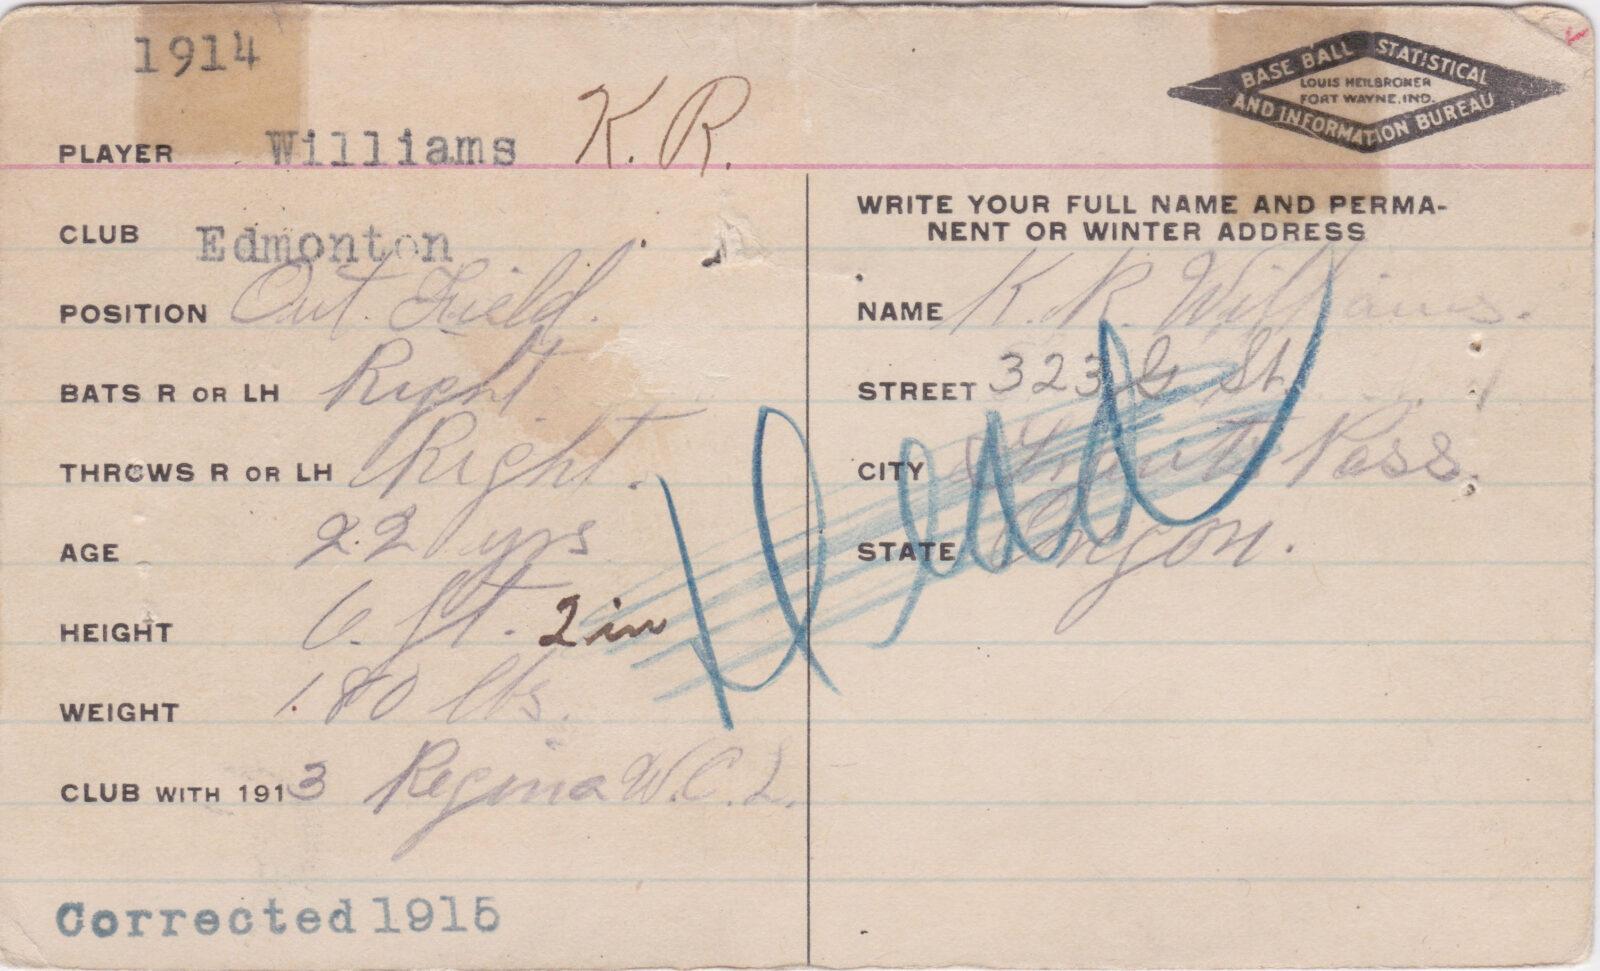 1914
BASE BALL STATISTICAL
LOUIS HEILBRONER
FORT WAYNE, IND.
AND INFORMATION BUREAU
PLAYER Williams K. R.
CLUB Edmonton
POSITION Out. Field.
BATS R OR LH Right
THROWS R OR LH Right.
AGE 22 yrs
HEIGHT 6. ft. 2 in
WEIGHT 180 lbs.
CLUB WITH 1913 Regina W.C.L.
Corrected 1915
WRITE YOUR FULL NAME AND PERMA-
NENT OR WINTER ADDRESS
NAME K. R. Williams.
STREET 323 G St.
CITY Grants Pass.
STATE Oregon.
Head